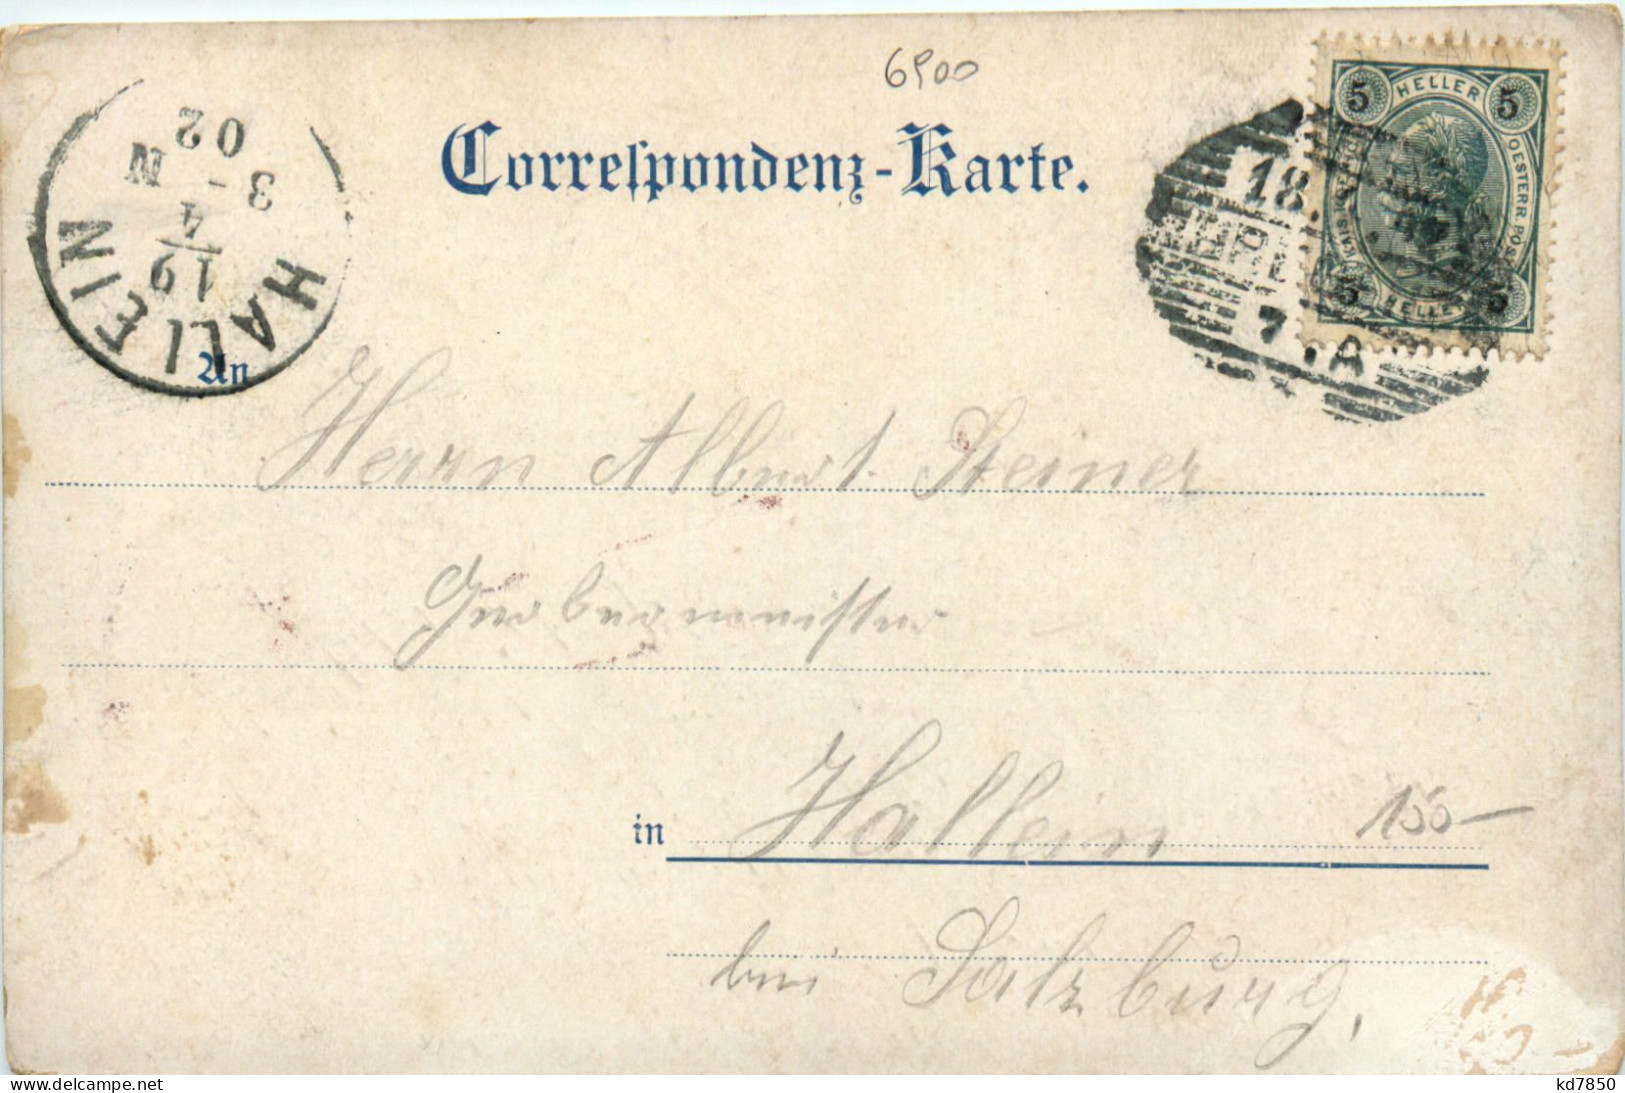 6900
Correspondenz-Karte.
5 HELLER 5
OESTERR. POST
5 HELLER 5
18.
7. A
HALLEIN
19
4
3 - N
02
An
Herrn Albert Steiner
Gerbermeister
in Hallein
150-
bei Salzburg,
delcampe.net
kd7850